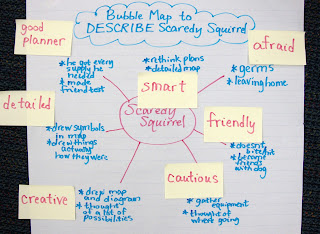 Bubble Map to
DESCRIBE Scaredy Squirrel
good
planner
* he got every
supply he
needed
* made
friend test
* rethink plans
* detailed map
smart
afraid
* germs
* leaving home
detailed
* drew symbols
in map
* drew things
actually
how they were
Scaredy
Squirrel
friendly
* doesn't
bite at
* become
friends
with dog
creative
* drew map
and diagram
* thought
of a lot of
possibilities
cautious
* gather
equipment
* thought of
where going